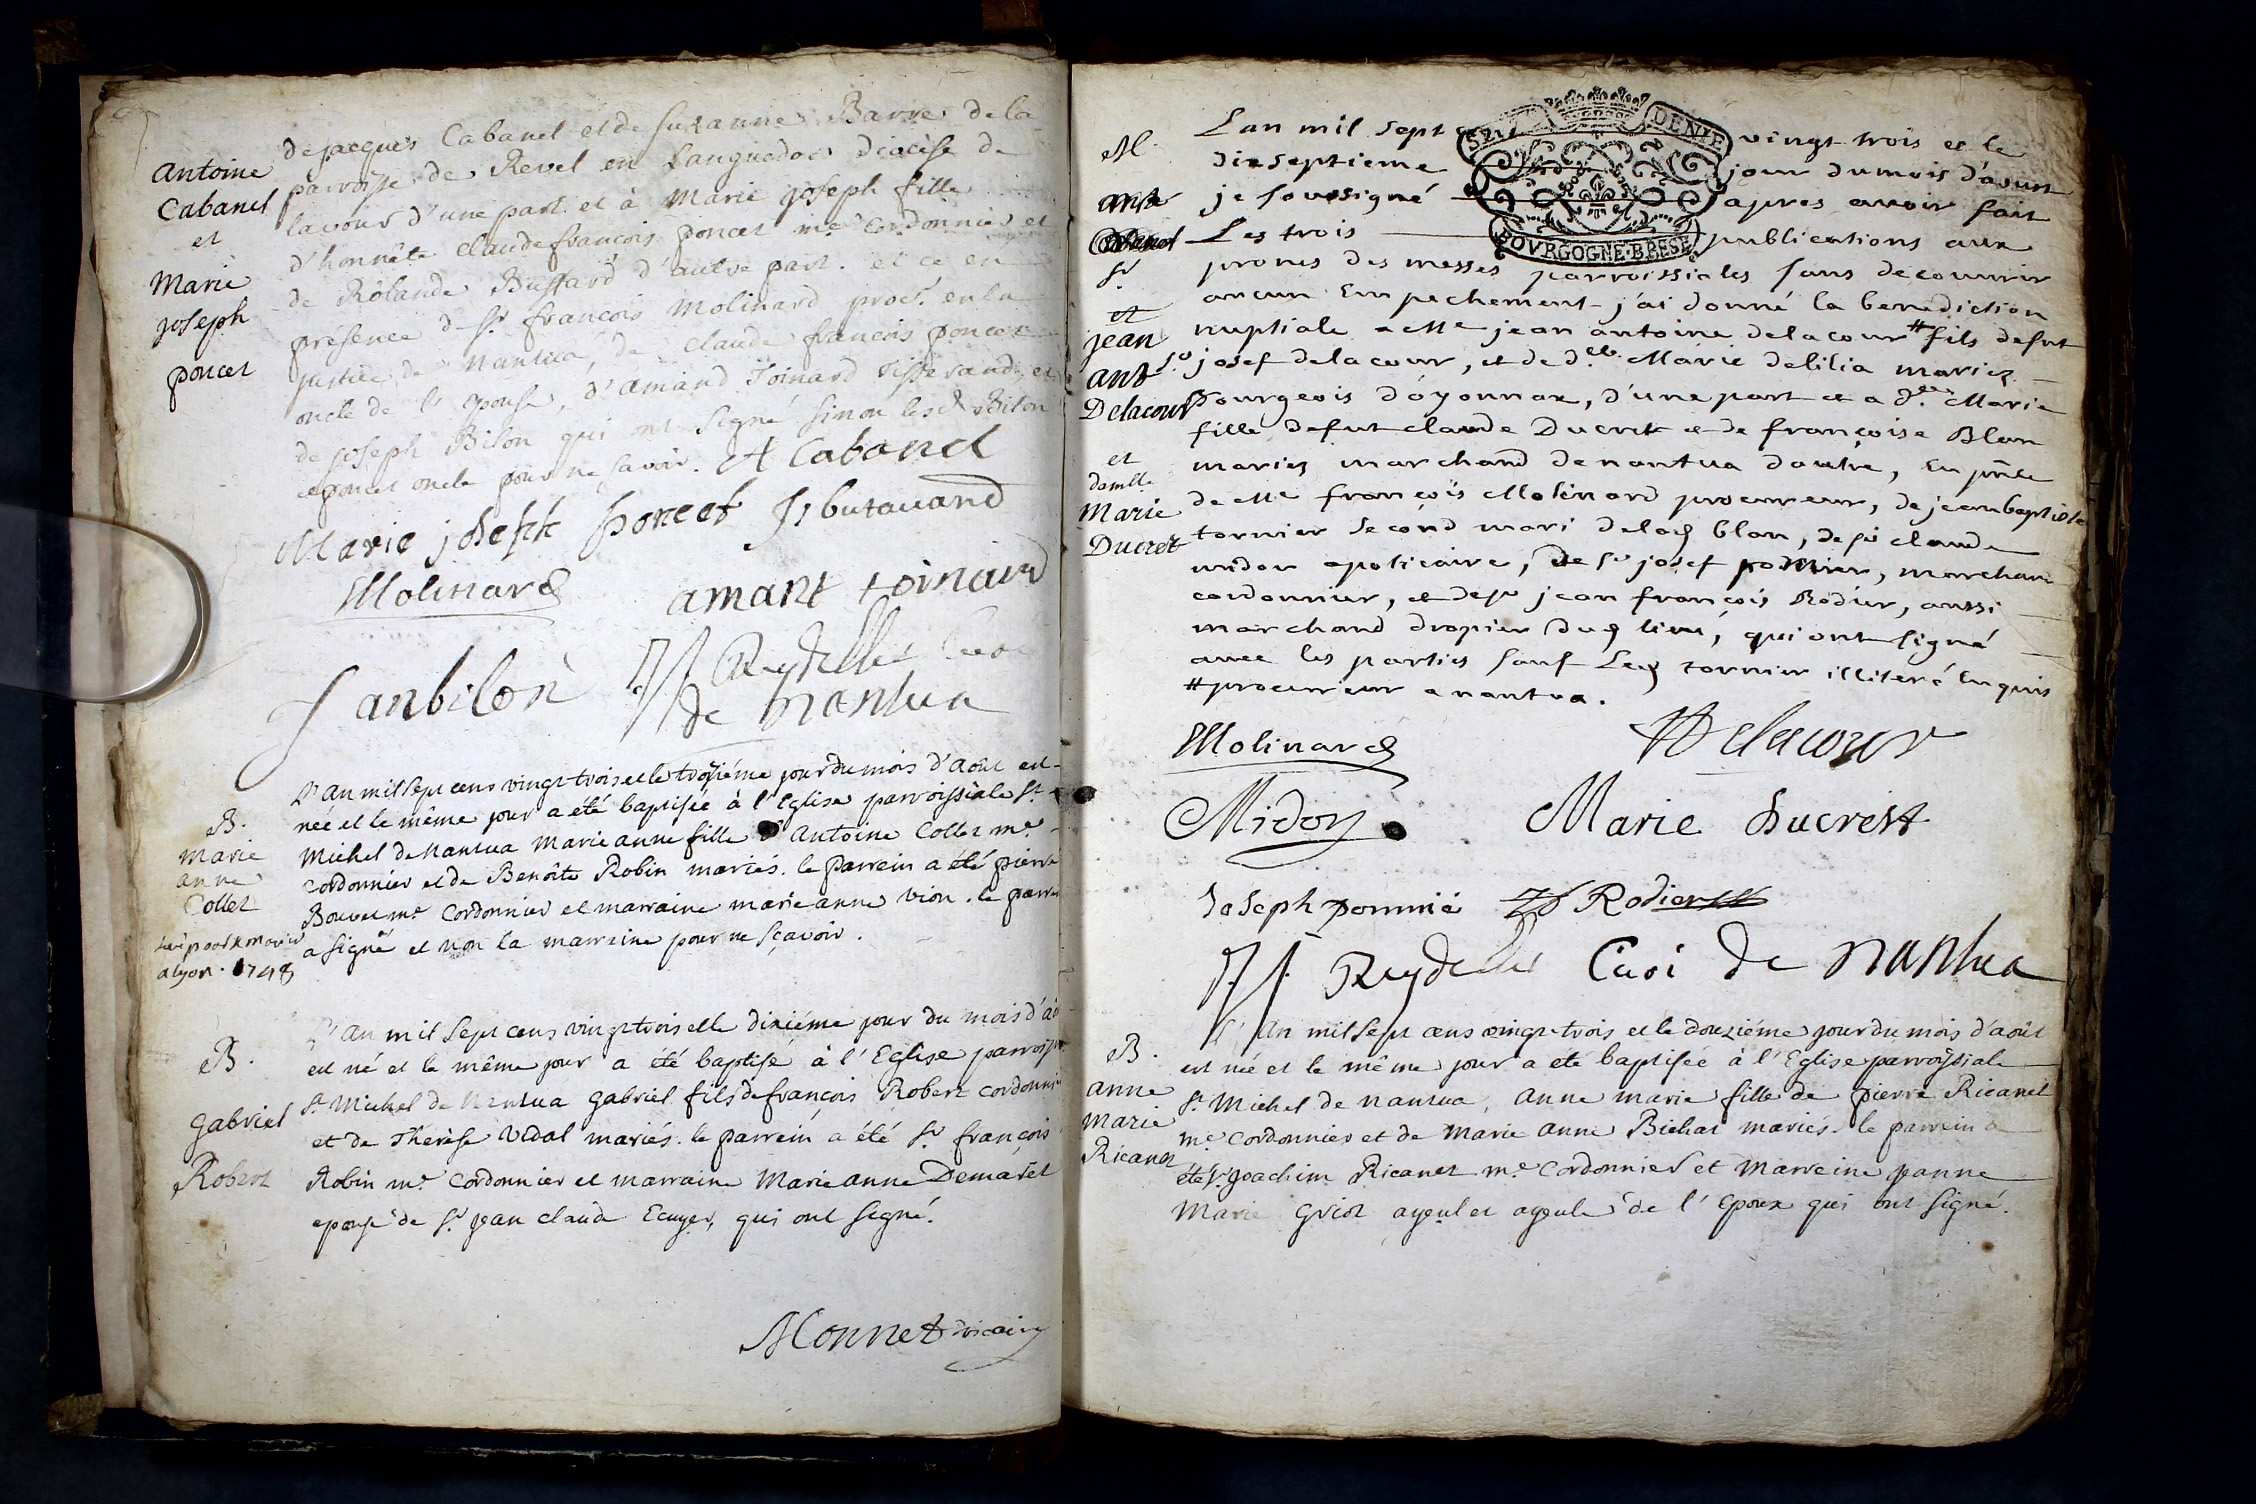 de jacques Cabanel et de suzanne Barre de la
Antoine
Cabanel
et
Marie
joseph
poncet
parroisse de Revel en Languedoc diocése de
lavour d'une part. et à Marie joseph fille
d'honnête Claude françois poncet me. Cordonnier et
de Rolande Buffard d'autre part. et ce en
présence de Sr. françois Molinard procr. en la
justice de Nantua, de Claude françois poncet
oncle de l'epouse, d'amand Toinard Tisserand, et
de joseph Bilon qui ont signé sinon lesd. Bilon
et poncet oncle pour ne savoir. A Cabanel
Marie joseph poncet
Molinard
amant toinard
J anbilon
Reydellet Curé
de nantua
B.
marie
anne
Collet
a lyon. 1748
L'an mil sept cens vingt trois et le troisiéme jour du mois d'août est
née et le même jour a été baptisée à l'Eglise parroissiale St.
Michel de Nantua Marie anne fille d'antoine Collet me.
Cordonnier et de Benoîte Robin mariés. le parrein a été pierre
Bouvet me. Cordonnier et marraine marie anne vion. le parrein
a signé et non la marraine pour ne sçavoir.
B.
gabriel
Robert
L'an mil sept cens vingt trois et le dixiéme jour du mois d'aô
est né et le même jour a été baptisé à l'Eglise parroiss
St. Michel de Nantua gabriel fils de françois Robert cordonnier
et de Therèse vidal mariés. le parrein a été Sr. françois
Robin me. Cordonnier et marraine Marie anne Demaret
epouse de Sr. jean claude Ecuyer, qui ont signé.
Monnet vicaire
SEL DENIE
BOVRGOGNE·BRESE
M.
Cabanel
Sr.
et
jean
ant
Delacour
et
damlle
Marie
Ducret
Lan mil sept cent vingt trois et le
dixseptieme jour du mois d'aoust
je soussigné apres avoir fait
Les trois publications aux
prones des messes parroissiales sans decouvrir
aucun Empechement j'ai donné la benediction
nuptiale a Me jean antoine delacour # fils defut
Sr. josef delacour, et de dlle. Marie delilia mariez
bourgeois d'oyonnax, d'une part et a dlle. Marie
fille defut claude Ducret et de françoise Blan
mariez marchand de nantua dautre, En pnce
de Me françois Molinard procureur, de jean baptiste
tornier second mari delad blan, de sr claude
midon apoticaire, de sr josef pommier, marchand
cordonnier, et de sr jean françois Rodier, aussi
marchand drapier dud lieu, qui ont signé
avec les parties sauf Led tornier illiteré Enquis
# procureur a nantua.
Molinard
Delacour
Midon
Marie Ducrest
Joseph pommié
Rodier
Reydellet Curé de nantua
B.
anne
marie
Ricanet
L'an mil sept cens vingt-trois et le douziéme jour du mois d'août
est née et le même jour a été baptisée à l'Eglise parroissiale
St. Michel de nantua, anne marie fille de pierre Ricanet
me. Cordonnier et de marie anne Bichat mariés. le parrein a
été Sr. joachim Ricanet me. Cordonnier et marreine janne
Marie griot ayeul et ayeule de l'epoux qui ont signé.